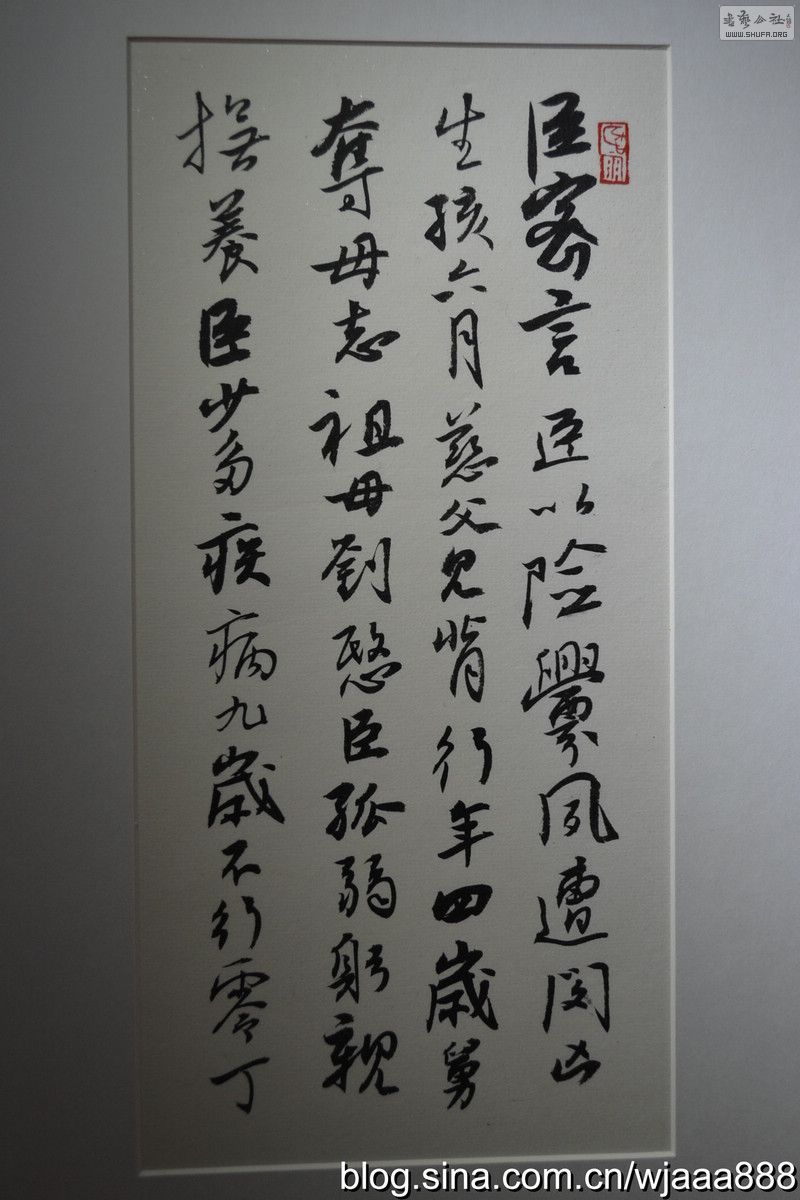 臣密言臣以險釁夙遭閔凶
生孩六月慈父見背行年四歲舅
奪母志祖母劉愍臣孤弱躬親
撫養臣少多疾病九歲不行零丁
书艺公社
WWW.SHUFA.ORG
blog.sina.com.cn/wjaaa888